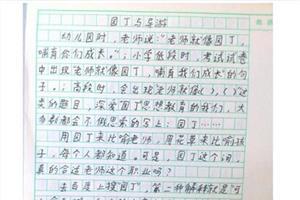 园丁与导游
幼儿园时，老师说："老师就像园丁，
哺育你们成长。"；小学低段时，考试试卷
中出现老师就像园丁，哺育我们成长"的句
子。；高段时，会出现老师就像( )，( )这
类的题目，深受园丁思想教育的我们，大
多都会不假思索的写上：园丁……
用园丁来比喻老师，用花草来比喻孩
子，每个人都知道。可是，园丁这个词，
真的合适老师这个职业吗？
去百度上搜"园丁"，第二种解释就是"可